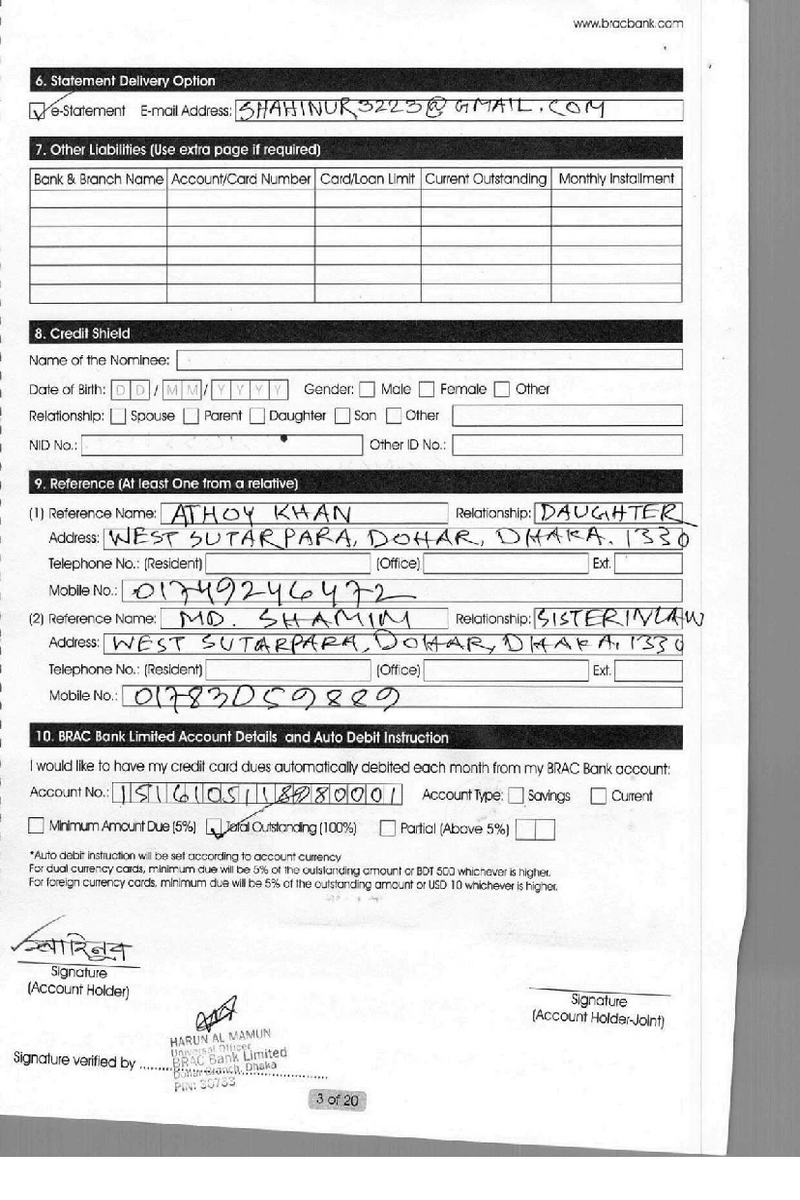 www.bracbank.com
6. Statement Delivery Option
e-Statement E-mail Address: SHAHINUR3223@GMAIL.COM
7. Other Liabilities (Use extra page if required)
Bank & Branch Name Account/Card Number Card/Loan Limit Current Outstanding Monthly Installment
8. Credit Shield
Name of the Nominee:
Date of Birth: D D / M M / Y Y Y Y Gender: Male Female Other
Relationship: Spouse Parent Daughter Son Other
NID No.: Other ID No.:
9. Reference (At least One from a relative)
(1) Reference Name: ATHOY KHAN Relationship: DAUGHTER
Address: WEST SUTARPARA, DOHAR, DHAKA. 1330
Telephone No.: (Resident) (Office) Ext.
Mobile No.: 01749246472
(2) Reference Name: MD. SHAMIM Relationship: SISTER IN LAW
Address: WEST SUTARPARA, DOHAR, DHAKA. 1330
Telephone No.: (Resident) (Office) Ext.
Mobile No.: 01783059889
10. BRAC Bank Limited Account Details and Auto Debit Instruction
I would like to have my credit card dues automatically debited each month from my BRAC Bank account:
Account No.: Account Type: Savings Current
Minimum Amount Due (5%) Total Outstanding (100%) Partial (Above 5%)
*Auto debit instruction will be set according to account currency
For dual currency cards, minimum due will be 5% of the outstanding amount or BDT 500 whichever is higher.
For foreign currency cards, minimum due will be 5% of the outstanding amount or USD 10 whichever is higher.
শাহিনুর
Signature
(Account Holder)
Signature
(Account Holder-Joint)
HARUN AL MAMUN
Universal Officer
BRAC Bank Limited
Dohar Branch, Dhaka
PIN: 30733
Signature verified by
3 of 20